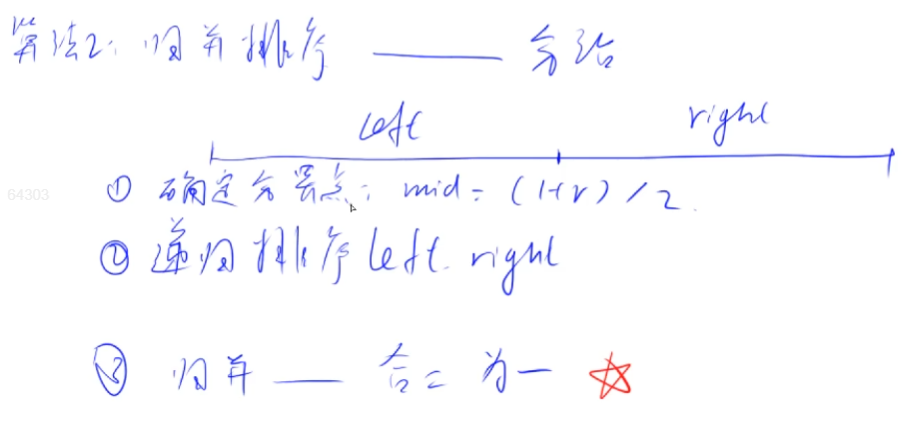 算法2: 归并排序 —— 分治
left right
① 确定分界点: mid = (l+r)/2.
② 递归排序 left. right
64303
③ 归并 —— 合二为一 ☆